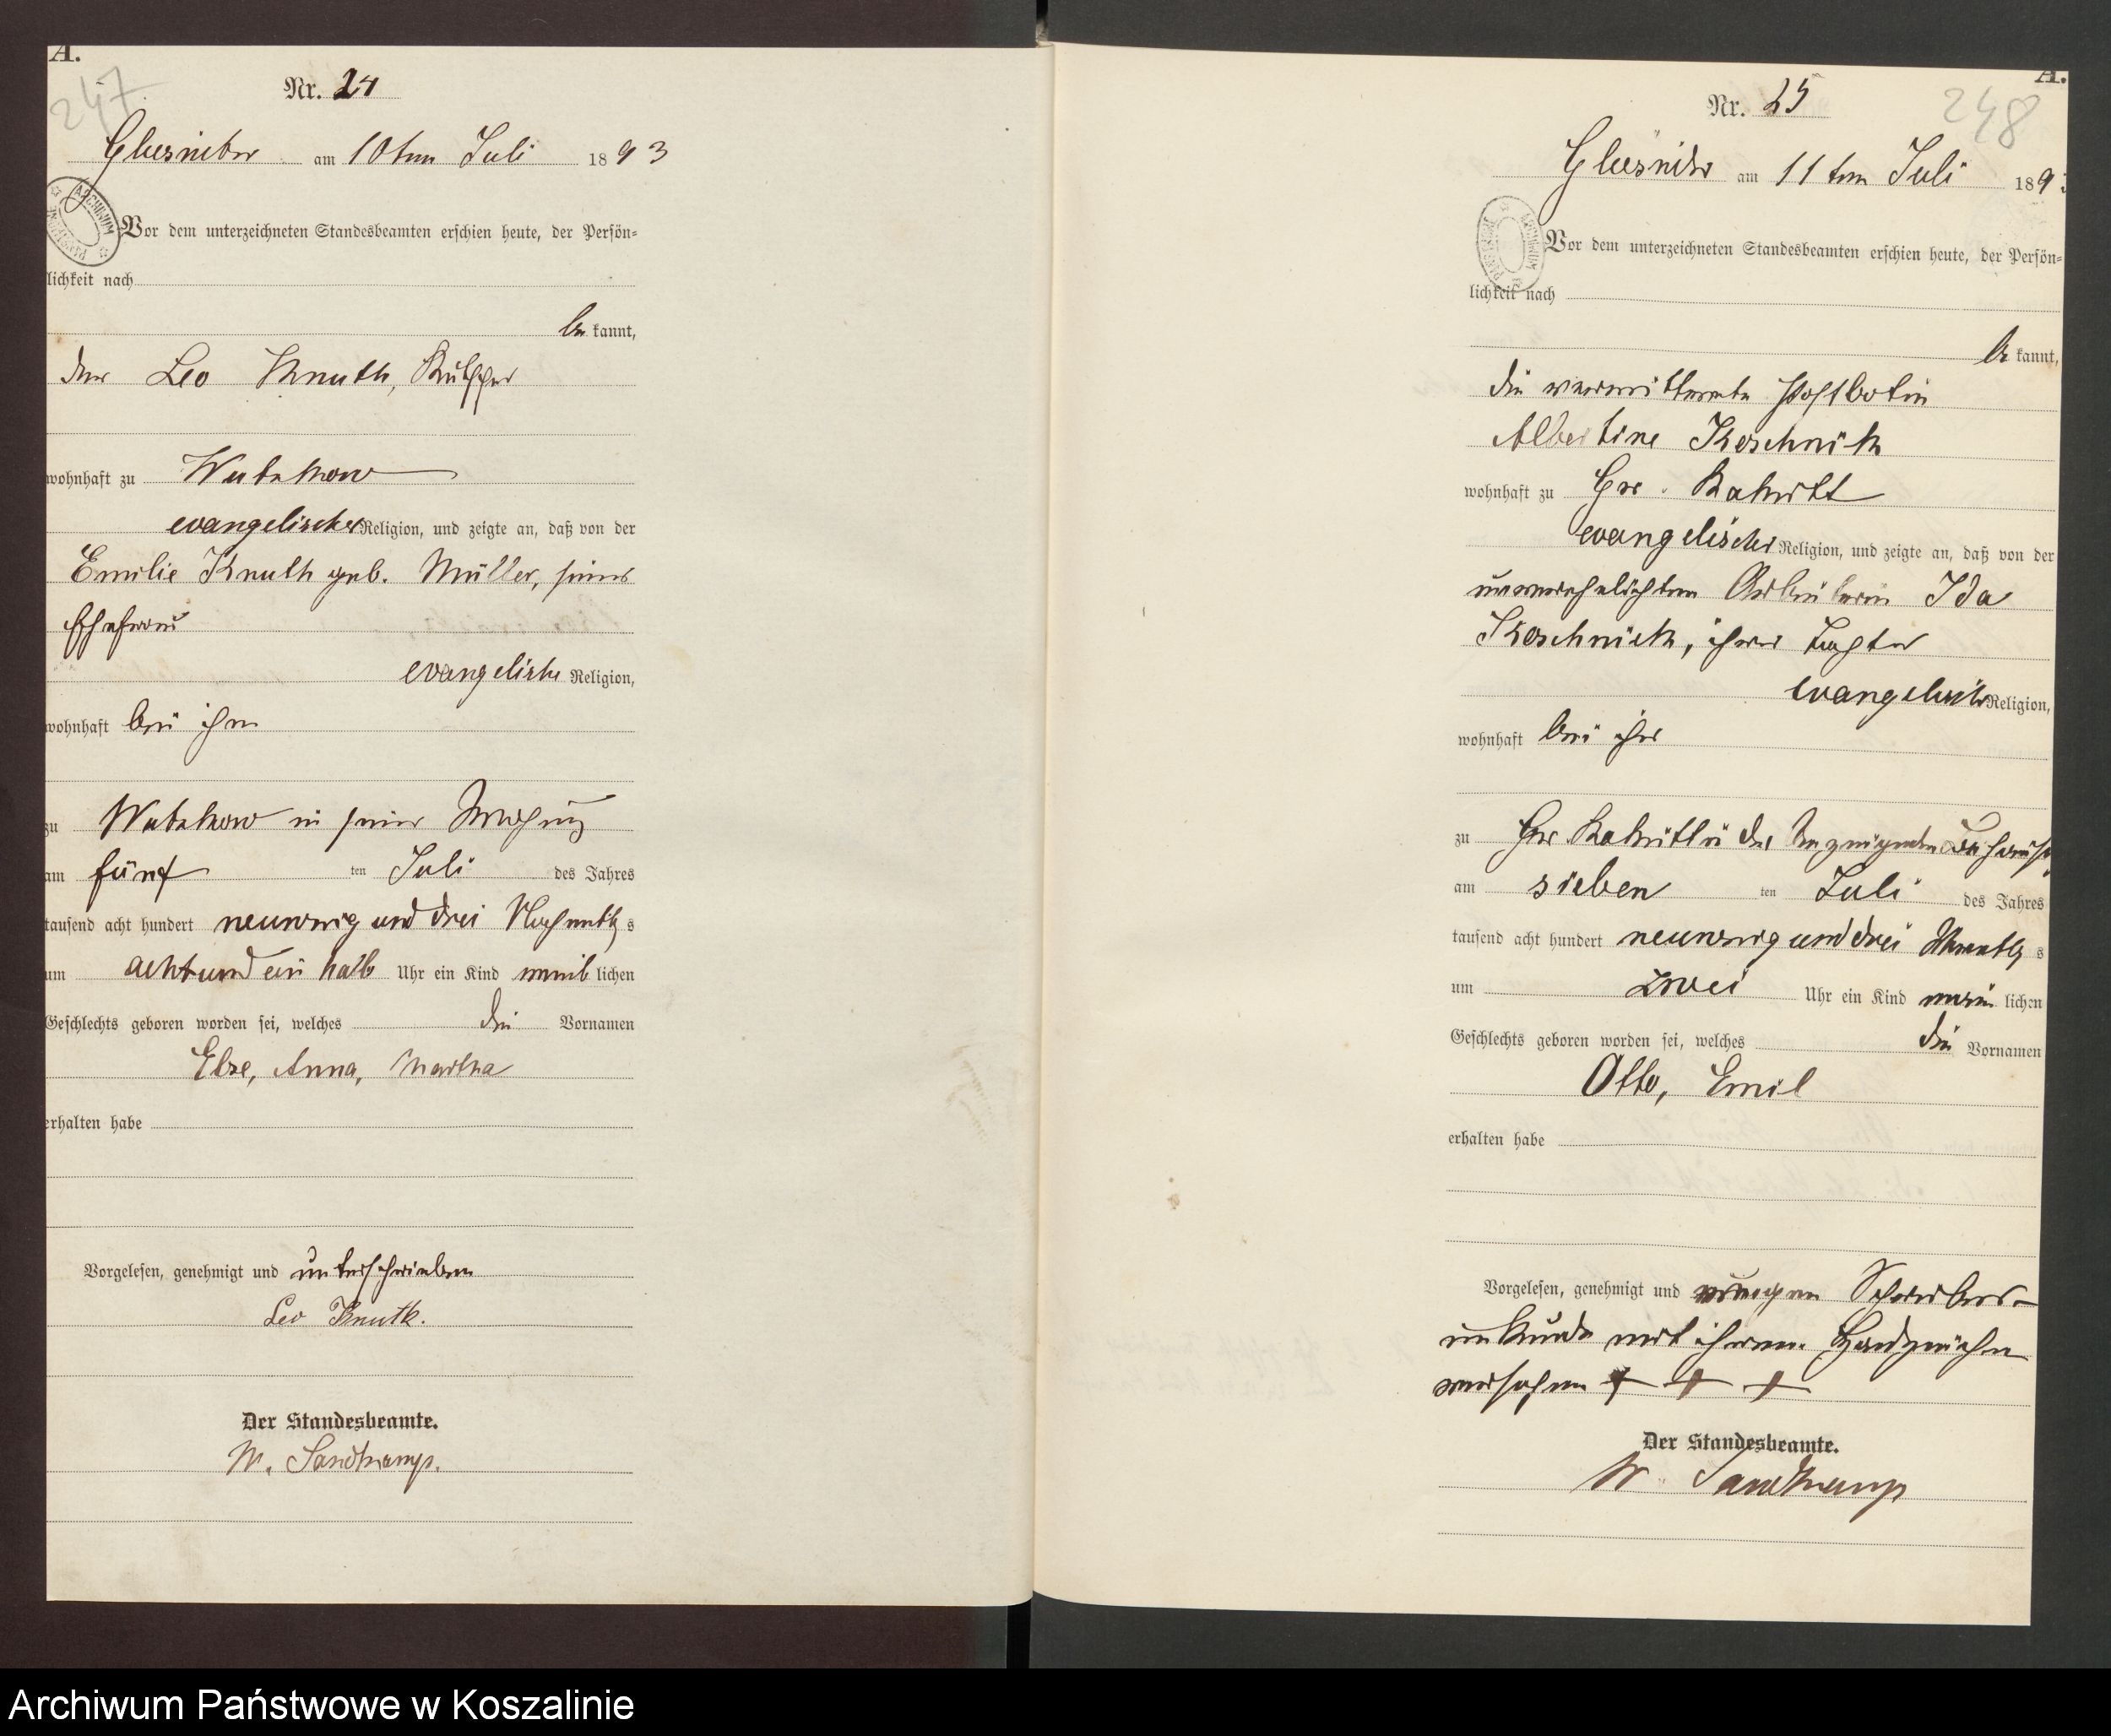 A.
247
Nr. 24
Glusnitz am 10ten Juli 1893
ARCHIWUM
Vor dem unterzeichneten Standesbeamten erschien heute, der Persön=
lichkeit nach
be kannt,
der Leo Knuth, Kutscher
wohnhaft zu
evangelischer Religion, und zeigte an, daß von der
Emilie Knuth geb. Müller, seiner
Ehefrau
evangelischer Religion,
wohnhaft bei ihm
zu in seiner Wohnung
am fünf ten Juli des Jahres
tausend acht hundert neunzig und drei Nachmittags
um acht und ein halb Uhr ein Kind weib lichen
Geschlechts geboren worden sei, welches die Vornamen
Else, Anna, Martha
erhalten habe
Vorgelesen, genehmigt und unterschrieben
Leo Knuth.
Der Standesbeamte.
W. Sandkamp.
A.
248
Nr. 25
am 11ten Juli 189
ARCHIWUM
Vor dem unterzeichneten Standesbeamten erschien heute, der Persön=
lichkeit nach
be kannt,
die verwittwete Postbotin
Albertine Koschnick
wohnhaft zu Gr. Rakitt
evangelischer Religion, und zeigte an, daß von der
unverehelichten Arbeiterin Ida
Koschnick, ihrer Tochter
evangelischer Religion,
wohnhaft bei ihr
zu Gr. Rakitt in der Anzeigenden Behausung
am sieben ten Juli des Jahres
tausend acht hundert neunzig und drei Vormittags
um zwei Uhr ein Kind männ lichen
Geschlechts geboren worden sei, welches die Vornamen
Otto, Emil
erhalten habe
Vorgelesen, genehmigt und wegen Schreibens-
unkunde mit ihrem Handzeichen
versehen + + +
Der Standesbeamte.
W. Sandkamp
Archiwum Państwowe w Koszalinie